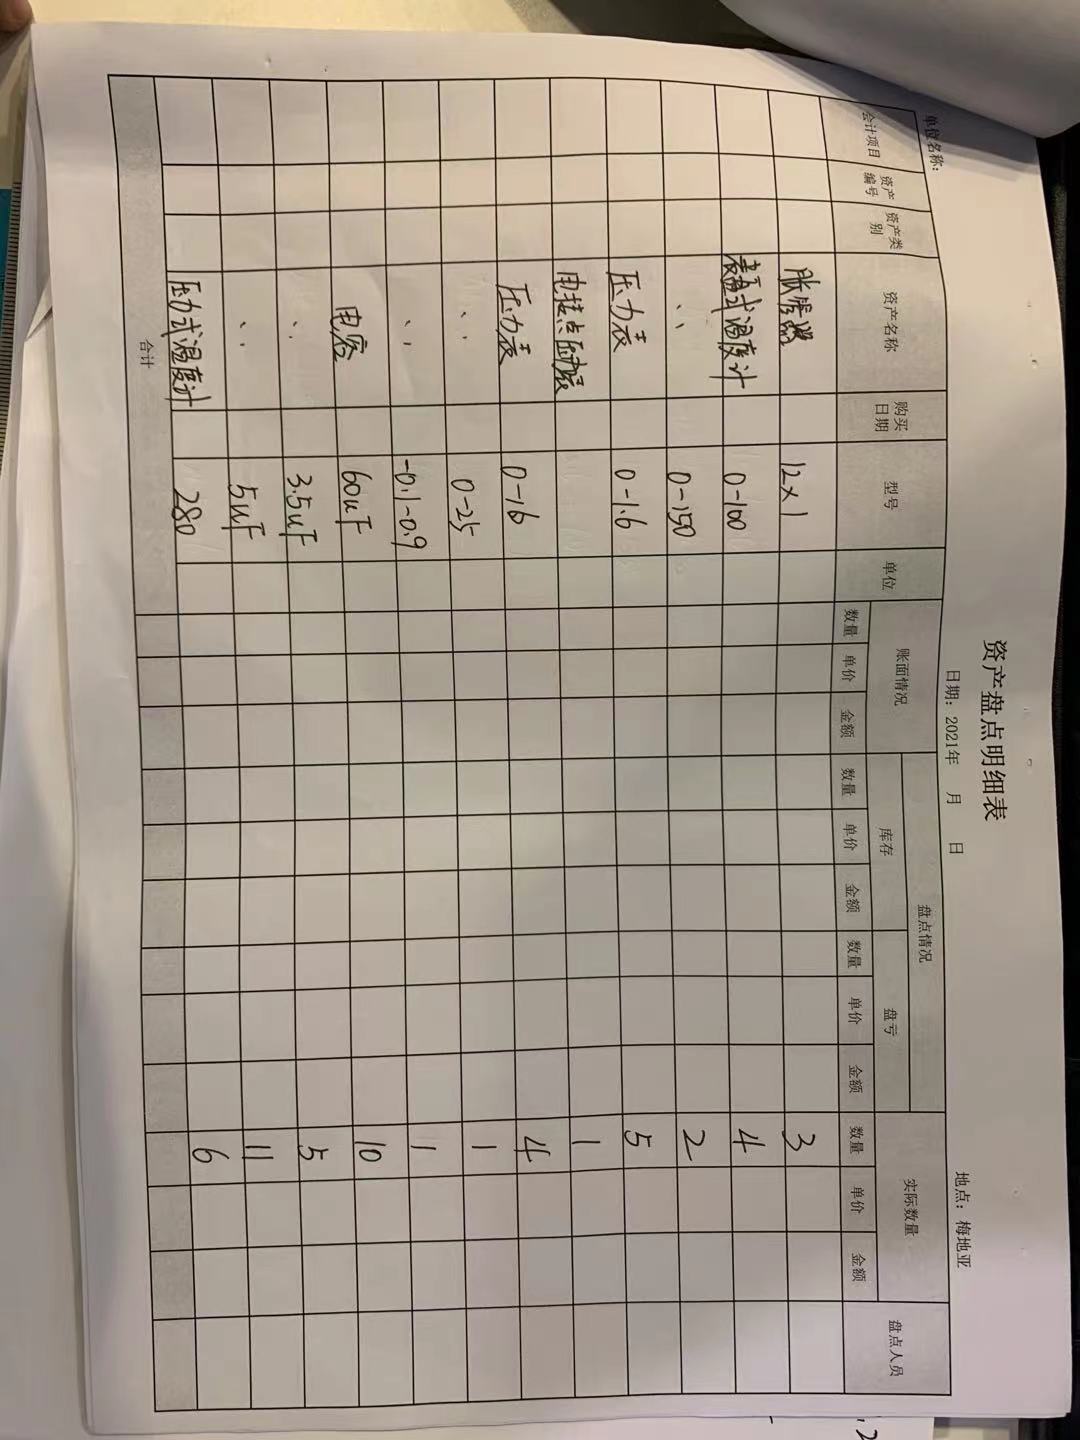 资产盘点明细表
单位名称： 日期：2021年 月 日 地点：梅地亚
会计项目 资产编号 资产类别 资产名称 购买日期 型号 单位 账面情况 盘点情况 实际数量 盘点人员
库存 盘亏
数量 单价 金额 数量 单价 金额 数量 单价 金额 数量 单价 金额
胀管器 12×1 3
表盘式温度计 0-100 4
〃 0-150 2
压力表 0-1.6 5
电接点压力表 1
压力表 0-16 4
〃 0-25 1
〃 -0.1-0.9 1
电容 60uF 10
〃 3.5uF 5
〃 5uF 11
压力式温度计 280 6
合计